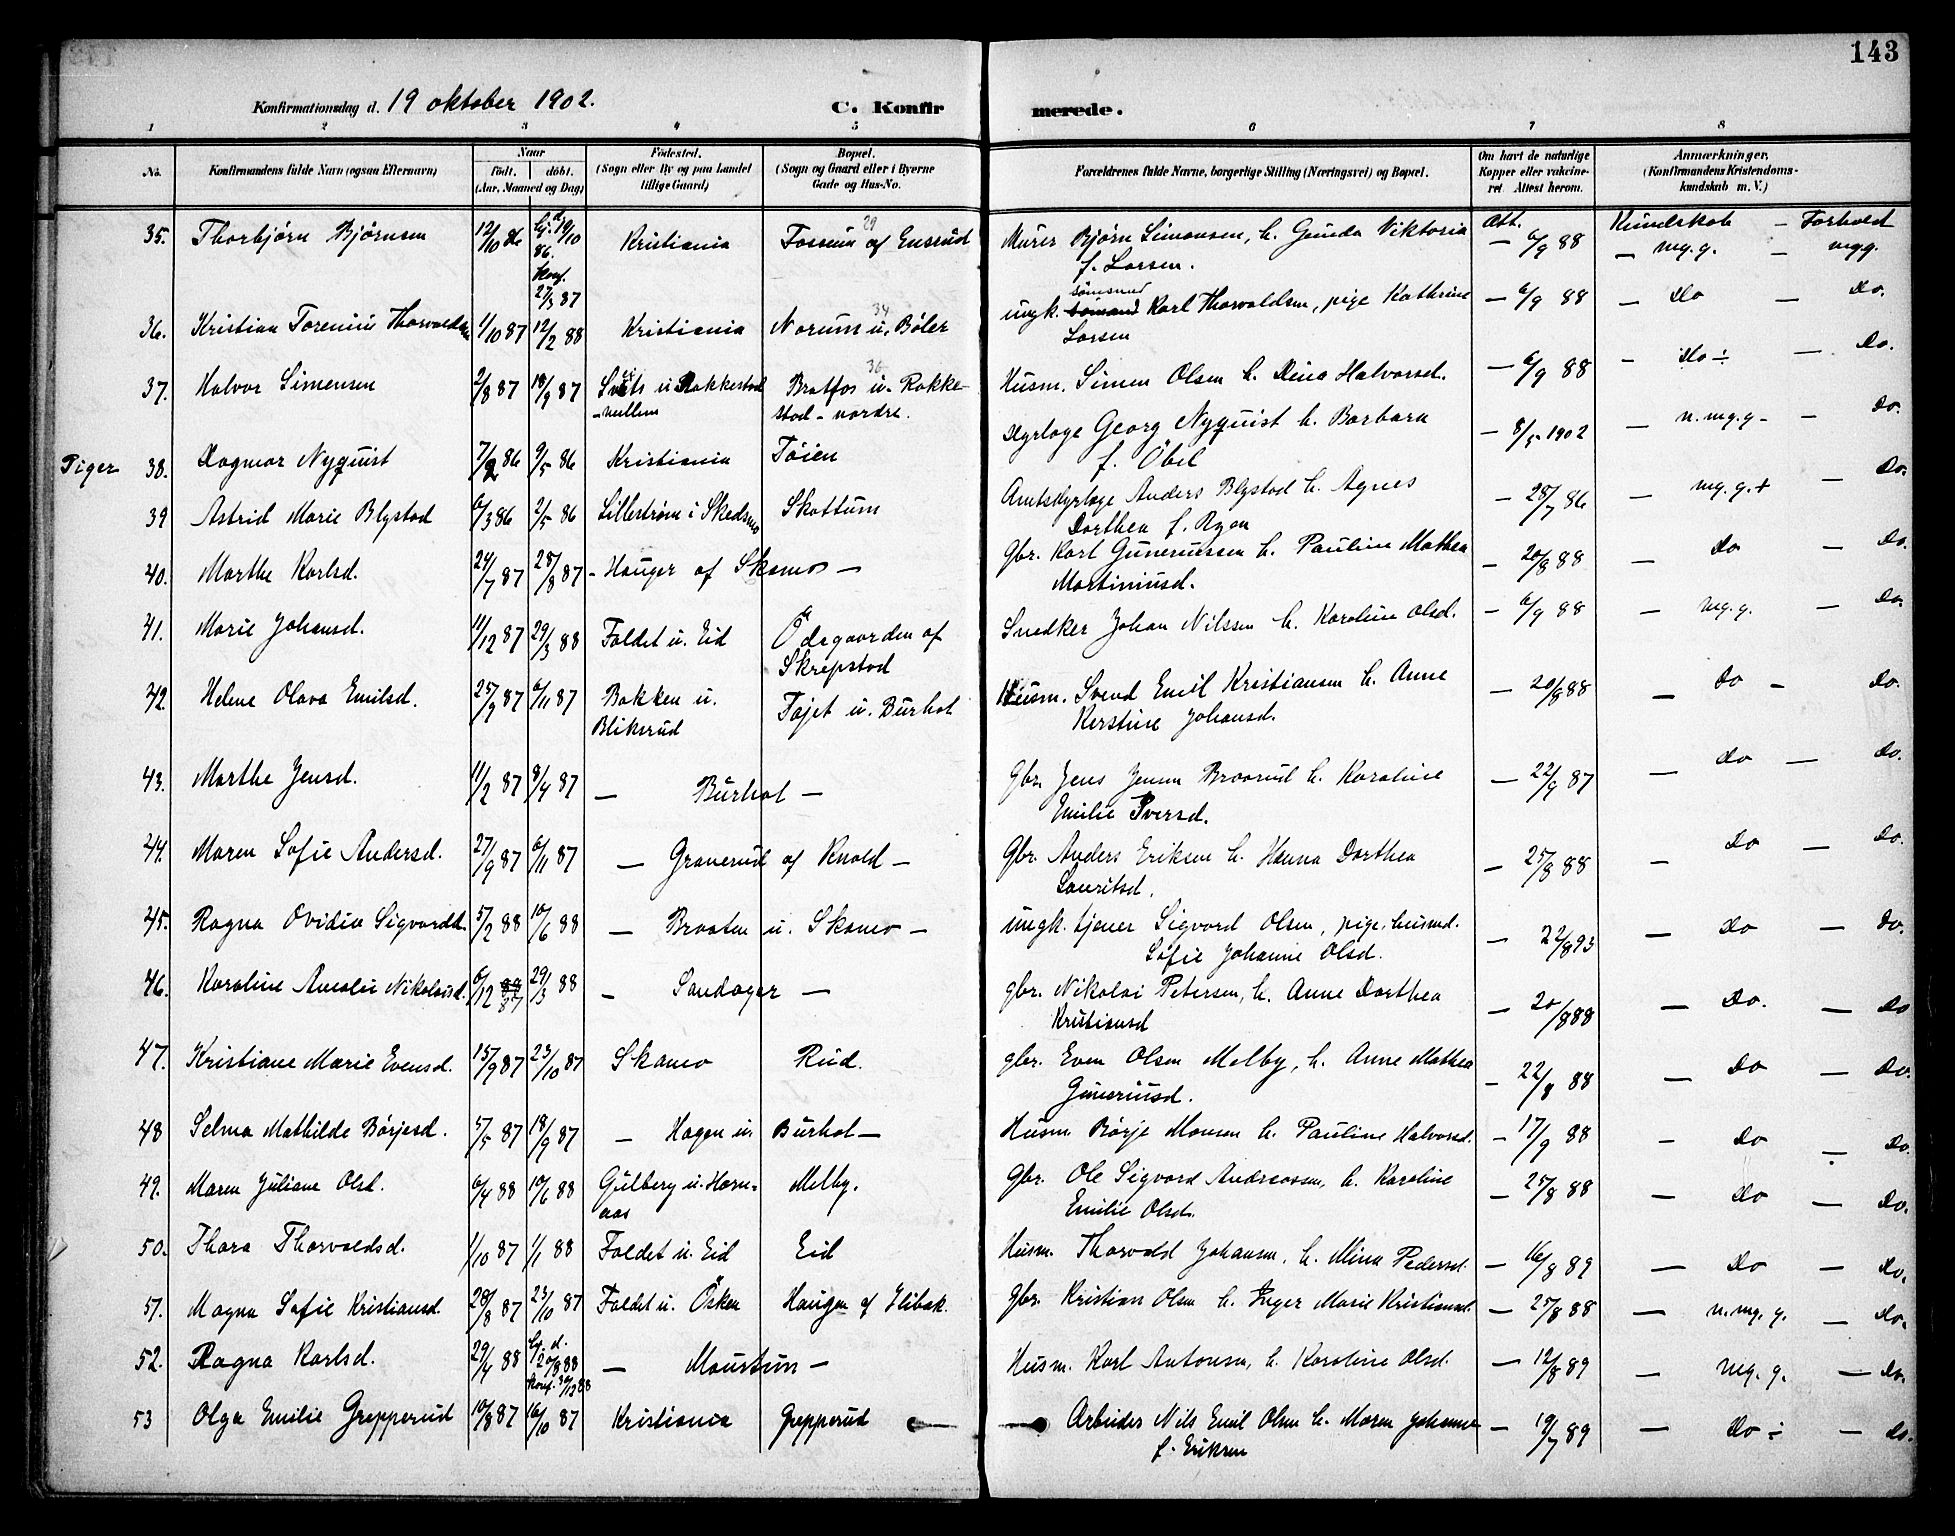 143
Konfirmationsdag d. 19 oktober 1902. C. Konfirmerede.
1 2 3 4 5 6 7 8
No. Konfirmandens fulde Navn (ogsaa Efternavn) Naar født. døbt. (Aar, Maaned og Dag) Fødested. (Sogn eller By og paa Landet tillige Gaard) Bopæl. (Sogn og Gaard eller i Byerne Gade og Hus-No. Forældrenes fulde Navne, borgerlige Stilling (Næringsvei) og Bopæl. Om havt de naturlige Kopper eller vakcineret Attest herom. Anmærkninger, (Konfirmandens Kristendomskundskab m. V.)
Att. Kundskab - Forhold
35. Thorbjørn Bjørnsen 12/10 86 hj. d. 19/10 86. konf. 27/3 87 Kristiania Fossum af Ensrud 29 Murer Bjørn Simonsen, h. Gunda Viktoria f. Larsen. — 6/9 88 — mg.g. — mgg.
36. Kristian Torenius Thorvaldsen 1/10 87 12/2 88 Kristiania Norum u. Bøler 34 ungk. sømand Karl Thorvaldsen, pige Kathrine Larsen — 6/9 88 — Do — Do.
37. Halvor Simensen 2/8 87 18/9 87 u Rakkestad - mellem Bratfos u. Rakkestad - nordre. 36 Husm. Simen Olsen h. Dina Halvorsd. — 6/9 88 — Do ÷ — Do.
Piger 38. Dagmar Nyquist 7/2 86 9/5 86 Kristiania Tøien Dyrlæge Georg Nyquist h. Barbara f. Øbil — 8/5 1902 — n. mg.g — Do.
39 Astrid Marie Blystad 6/3 86 2/5 86 Lillestrøm i Skedsmo Skottum Amtsdyrlæge Anders Blystad h. Agnes Dorthea f. Ryen — 28/7 86 — mg.g.+ — Do.
40. Marthe Karlsd. 24/7 87 28/8 87 - Hauger af Skamo — Gbr. Karl Gunerussen h. Pauline Mathea Martiniusd. — 20/8 88 — Do — Do.
41. Marie Johansd. 11/12 87 29/3 88 Faldet u. Eid Ödegaarden af Skrepstad Snedker Johan Nilssen h. Karoline Olsd. — 6/9 88 — mg.g. — Do.
42. Helene Olava Emilsd. 25/9 87 6/11 87 Bakken u. Blikerud Fajet u. Burhol Husm. Svend Emil Kristiansen h. Anne Kerstine Johansd. — 20/8 88 — Do - Do.
43. Marthe Jensd. 11/2 87 8/4 87 — Burhol — Gbr. Jens Jensen Braarud h. Karoline Emilie Iversd. — 22/9 87 — Do — Do.
44. Maren Sofie Andersd. 27/9 87 6/11 87 — Granerud af Knold — Gbr. Anders Eriksen h. Hanna Dorthea Lauritsd. — 25/8 88 — Do — Do.
45. Ragna Ovidia Sigvardd. 5/2 88 10/6 88 — Braaten u. Skamo — ungk. tjener Sigvard Olsen, pige. husmd. Sofie Johanne Olsd. — 22/8 93 — Do — Do.
46. Karoline Amalie Nikolaisd. 6/12 87 29/3 88 — Sandager — gbr. Nikolai Petersen, h. Anne Dorthea Kristiansd — 20/8 88 — Do. — Do
47. Kristiane Marie Evensd. 15/9 87 23/10 87 Skamo Rud. gbr. Even Olsen Melby, h. Anne Mathea Guneriusd. — 22/8 88 — Do — Do.
48 Selma Mathilde Børjesd. 5/5 87 18/9 87 — Hagen u. Burhol — Husm. Børje Monsen h. Pauline Halvorsd. — 17/9 88 — Do — Do.
49. Maren Juliane Olsd. 6/4 88 10/6 88 Gulberg u. Hornaas Melby. Gbr. Ole Sigvard Andreassen, h. Karoline Emilie Olsd. — 25/8 88 — Do — Do.
50. Thora Thorvaldsd. 1/10 87 1/1 88 Faldet u. Eid Eid Husm. Thorvald Johansen, h. Mina Pedersd. — 16/8 89 — Do — Do.
51. Magna Sofie Kristiansd. 28/8 87 23/10 87 Faldet u. Ösken Haugen af Hibak. Gbr. Kristian Olsen h. Inger Marie Kristiansd. — 25/8 88 — n. mg. g. — Do.
52. Ragna Karlsd. 29/4 88 hj. d. 20/8 88 konf. 30/12 88 — Maurtun — Husm. Karl Antonsen, h. Karoline Olsd. — 12/8 89 — mg. g. — Do.
53 Olga Emilie Grepperud 10/8 87 16/10 87 Kristiania Grepperud Arbeider Nils Emil Olsen h. Maren Johanne f. Eriksen — 19/7 89 — Do ÷ — Do.